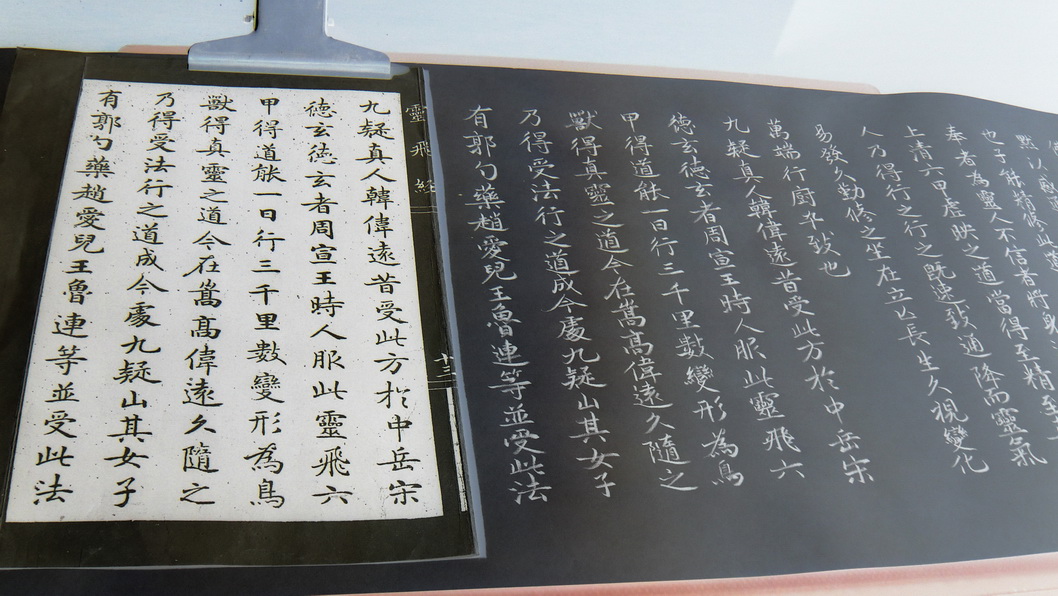 靈飛經
十三
九疑真人韓偉遠昔受此方於中岳宋
德玄德玄者周宣王時人服此靈飛六
甲得道能一日行三千里數變形為鳥
獸得真靈之道今在嵩高偉遠久隨之
乃得受法行之道成今處九疑山其女子
有郭勺藥趙愛兒王魯連等並受此法
默以
也子能精修此道
奉者為靈人不信者將身
上清六甲虛映之道當得至精至
人乃得行之行之既速致通降而靈氣
易發久勤修之坐在立亡長生久視變化
萬端行廚卒致也
九疑真人韓偉遠昔受此方於中岳宋
德玄德玄者周宣王時人服此靈飛六
甲得道能一日行三千里數變形為鳥
獸得真靈之道今在嵩高偉遠久隨之
乃得受法行之道成今處九疑山其女子
有郭勺藥趙愛兒王魯連等並受此法